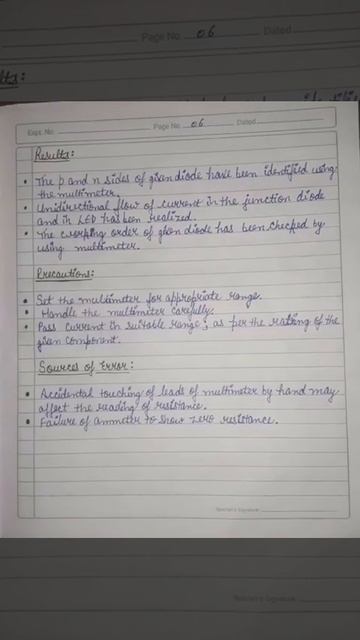 Page No. 06 Dated
Expt. No. Page No. 06 Dated
Results:
• The p and n sides of given diode have been identified using
the multimeter.
• Unidirectional flow of current in the junction diode
and in LED has been realized.
• The working order of given diode has been checked by
using multimeter.
Precautions:
• Set the multimeter for appropriate range.
• Handle the multimeter carefully.
• Pass current in suitable range; as per the rating of the
given component.
Sources of Error:
• Accidental touching of leads of multimeter by hand may
affect the reading of resistance.
• Failure of ammeter to show zero resistance.
Teacher's Signature
Teacher's Signature